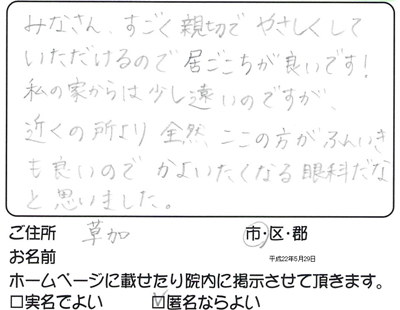 みなさん、すごく親切でやさしくして
いただけるので居ごこちが良いです!
私の家からは少し遠いのですが、
近くの所より全然、ここの方がふんいき
も良いのでかよいたくなる眼科だな
と思いました。
ご住所 草加 市・区・郡
お名前 平成22年5月29日
ホームページに載せたり院内に掲示させて頂きます。
□実名でよい ☑匿名ならよい